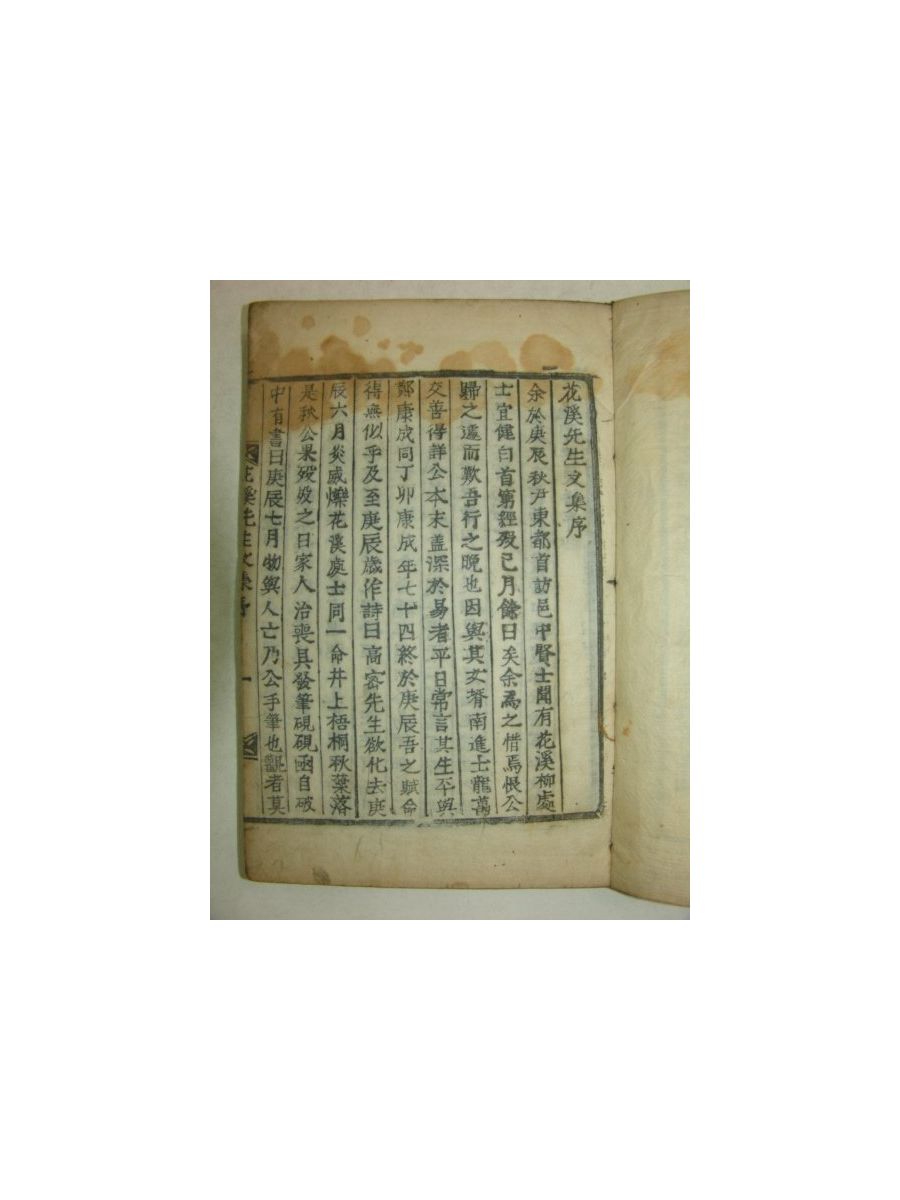 花溪先生文集序
余於庚辰秋尹東都首訪邑中賢士聞有花溪柳處
士宜健白首窮經歿已月餘日矣余爲之惜焉恨公
歸之遽而歎吾行之晩也因與其女壻南進士龍萬
交善得詳公本末盖深於易者平日常言其生年與
鄭康成同丁卯康成年七十四終於庚辰吾之賦命
得無似乎及至庚辰歲作詩曰高密先生欲化去庚
辰六月炎威爍花溪處士同一命井上梧桐秋葉落
是秋公果歿歿之日家人治喪具發筆硯硯凾自破
中有書曰庚辰七月物與人亡乃公手筆也觀者莫
花溪先生文集序
一